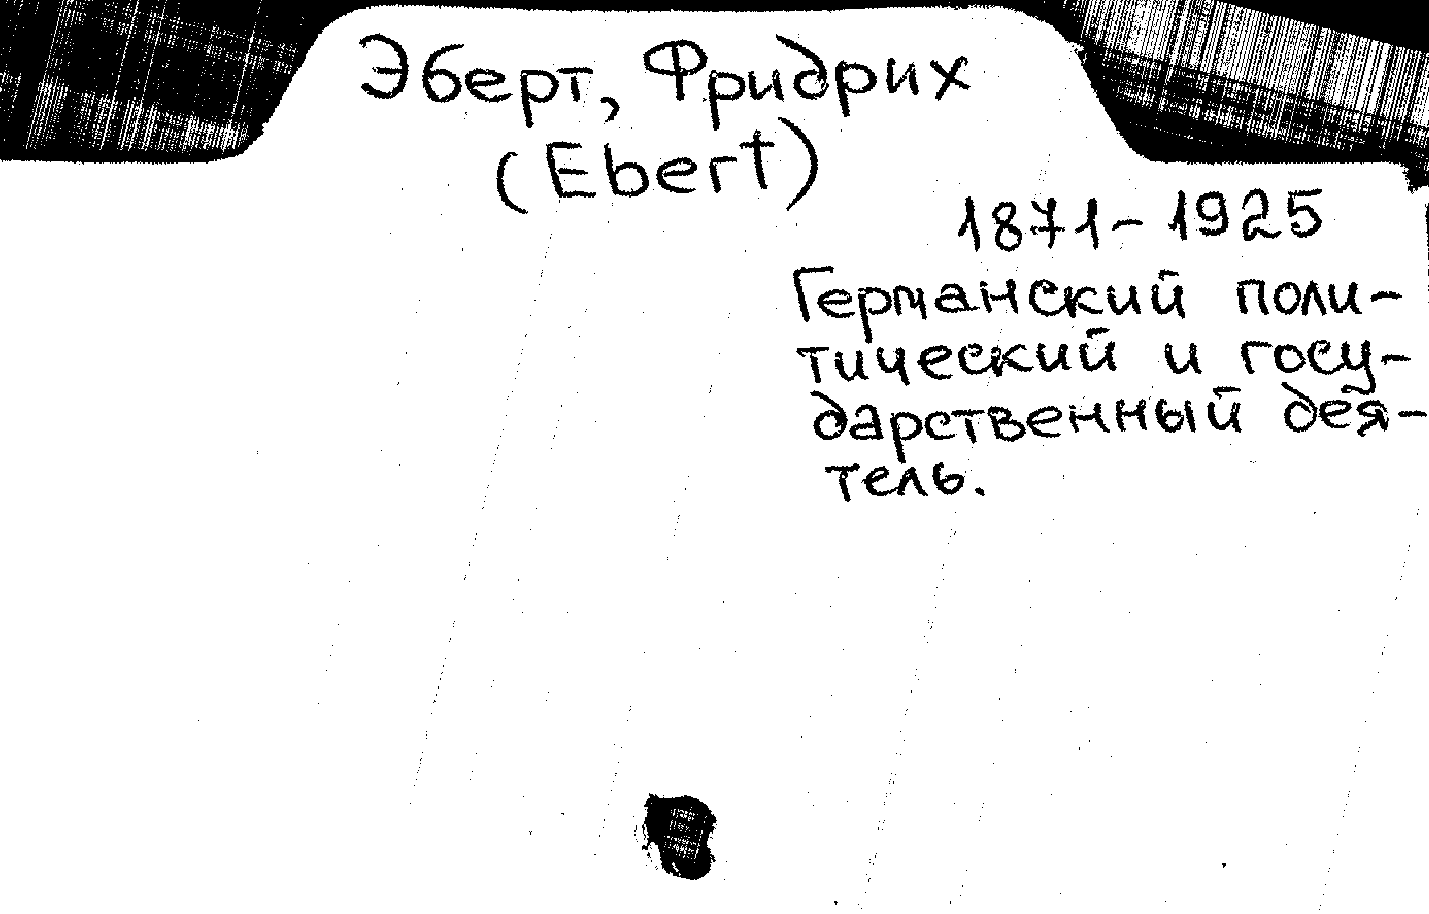 Эберт, Фридрих
(Ebert)
1871-1925
Германский поли-
тический и госу-
дарственный дея-
тель.